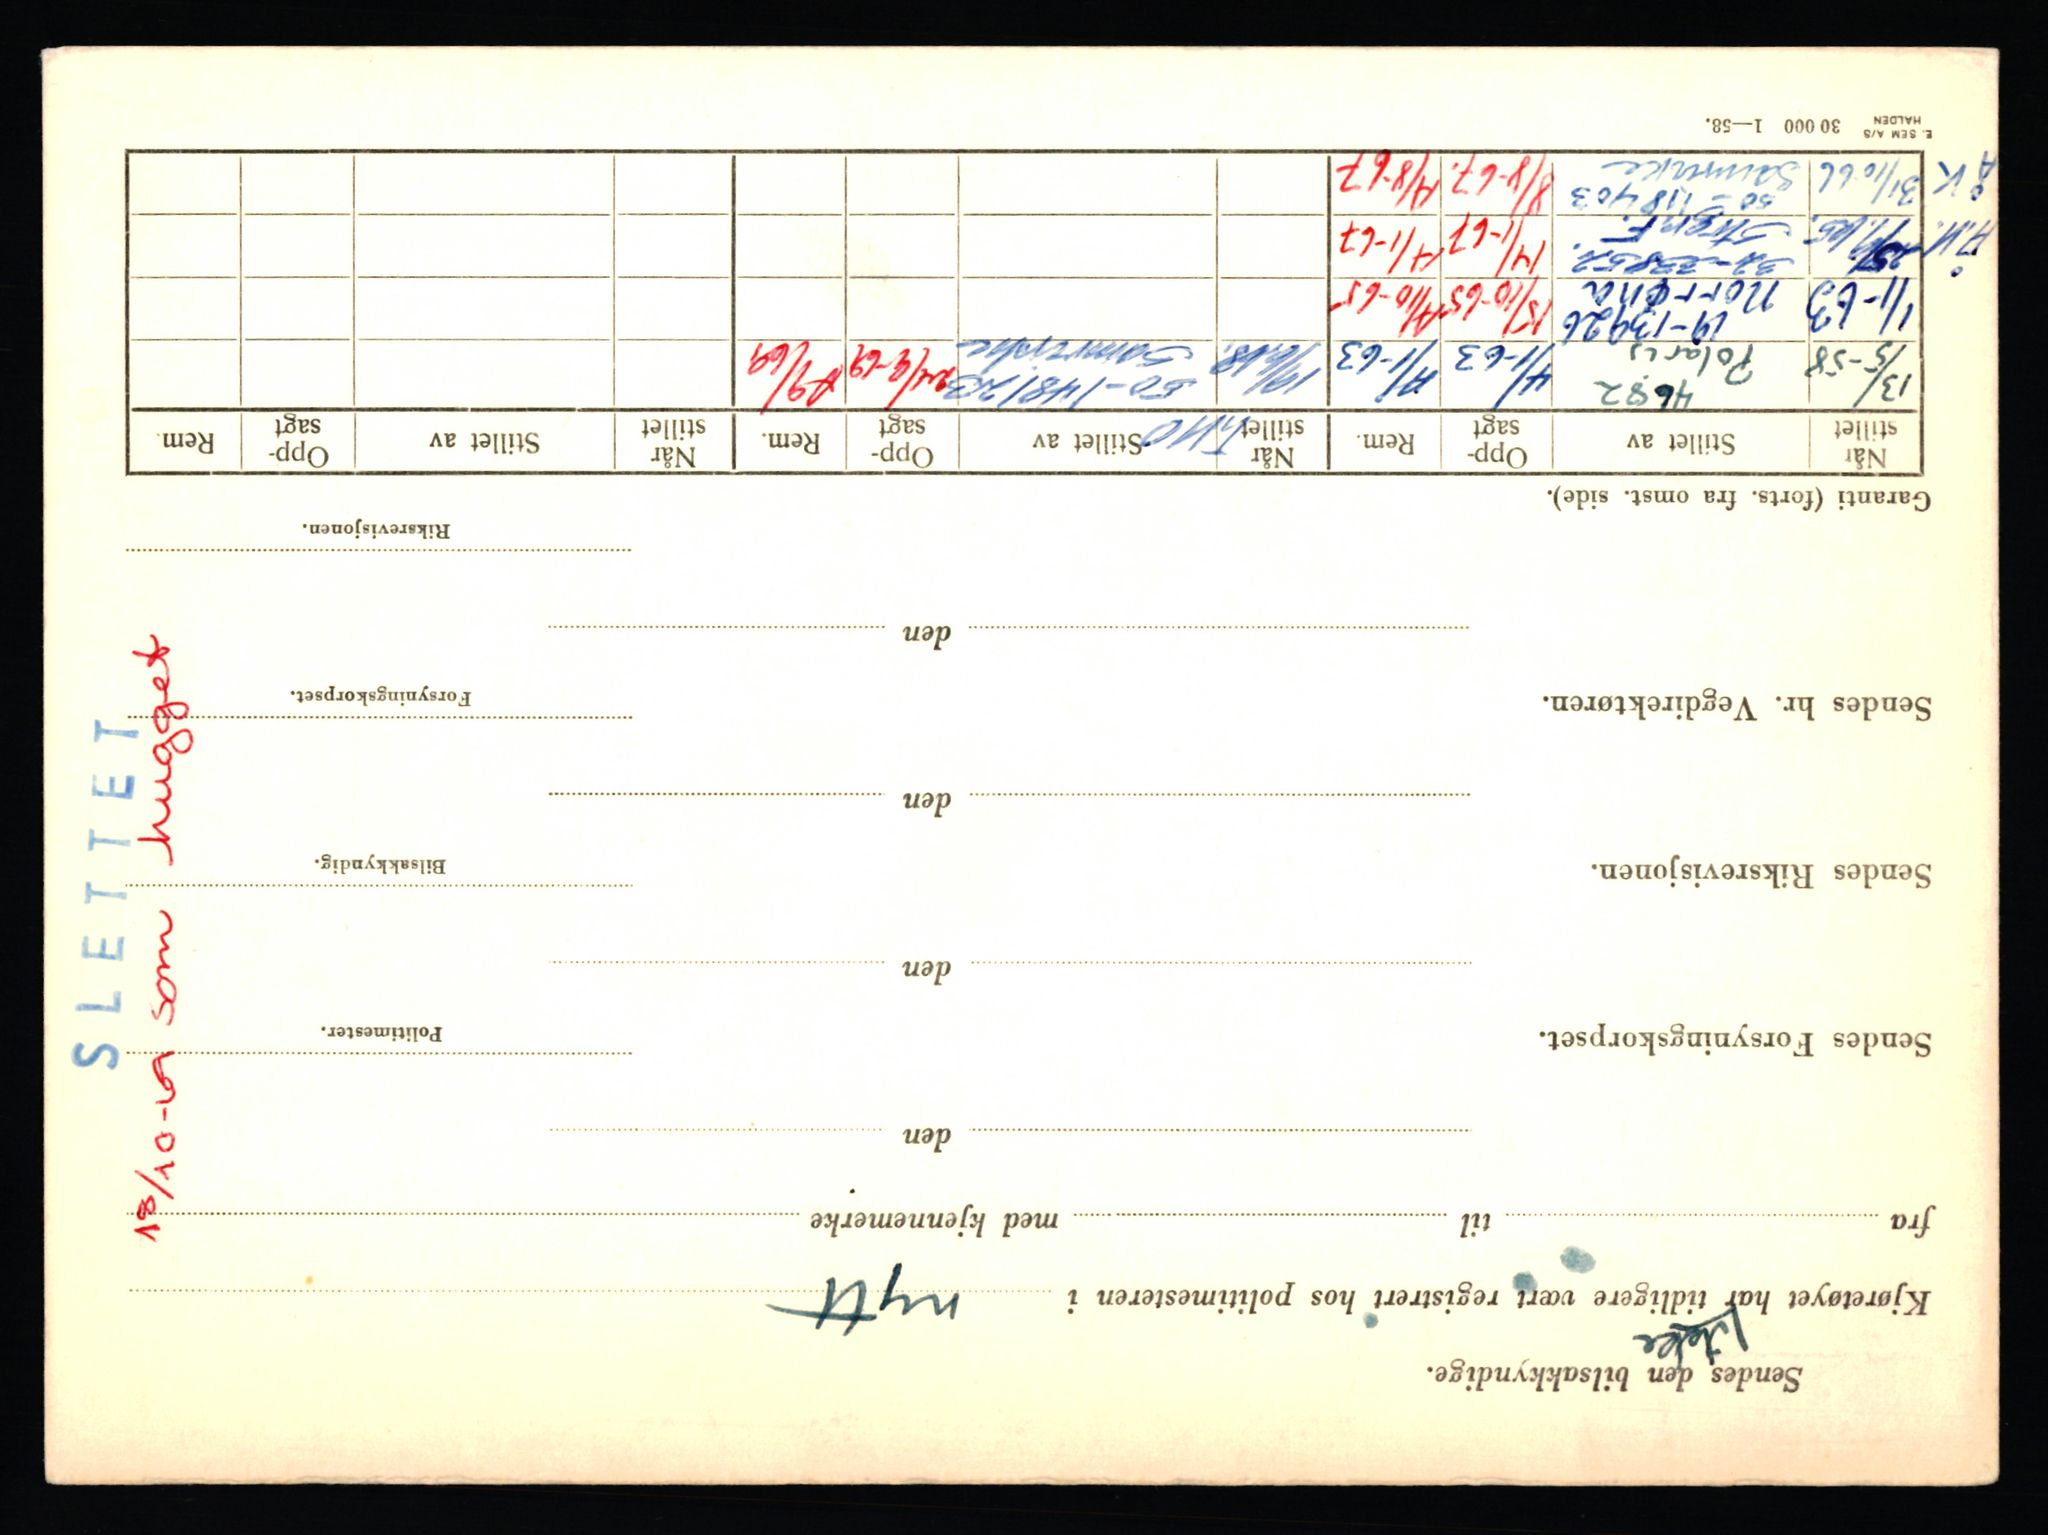 Sendes den bilsakkyndige.
ikke
Kjøretøyet har tidligere vært registrert hos politimesteren i nytt
fra til med kjennemerke
den
Politimester.
Sendes Forsyningskorpset.
den
Bilsakkyndig.
Sendes Riksrevisjonen.
den
Forsyningskorpset.
Sendes hr. Vegdirektøren.
den
Riksrevisjonen.
Garanti (forts. fra omst. side).
Når stillet Stillet av Opp- sagt Rem. Når stillet Stillet av Opp- sagt Rem. Når stillet Stillet av Opp- sagt Rem.
13/5-58 4682 Polaris 4/1-63 A/1-63 50-148123 Samvirke
1/1-63 19-13926 Norrøna 15/10-65 A/10-65
32-33852 Storebr. 14/1-67 A/1-67
Å K 31/10-66 50-118403 Samvirke 8/8-67. A/8-67
E. SEM A/S HALDEN 30 000 1—58.
SLETTET
18/10-69 som hugget